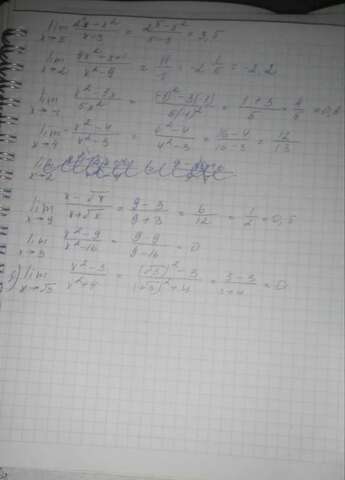 lim x→5 (2^x - x^2)/(x-3) = (2^5 - 5^2)/(5-3) = 3,5
lim x→2 (3x^2 - x + 1)/(x^2 - 9) = 11/-5 = -2 1/5 = -2,2
lim x→-1 (x^2 - 3x)/(5x^2) = ((-1)^2 - 3(-1))/(5(-1)^2) = (1+3)/5 = 4/5 = 0,8
lim x→4 (x^2 - 4)/(x^2 - 3) = (4^2 - 4)/(4^2 - 3) = (16-4)/(16-3) = 12/13
lim x→9 (x - √x)/(x + √x) = (9-3)/(9+3) = 6/12 = 1/2 = 0,5
lim x→3 (x^2 - 9)/(x^2 - 16) = (9-9)/(9-16) = 0
lim x→√3 (x^2 - 3)/(x^2 + 4) = ((√3)^2 - 3)/((√3)^2 + 4) = (3-3)/(3+4) = 0